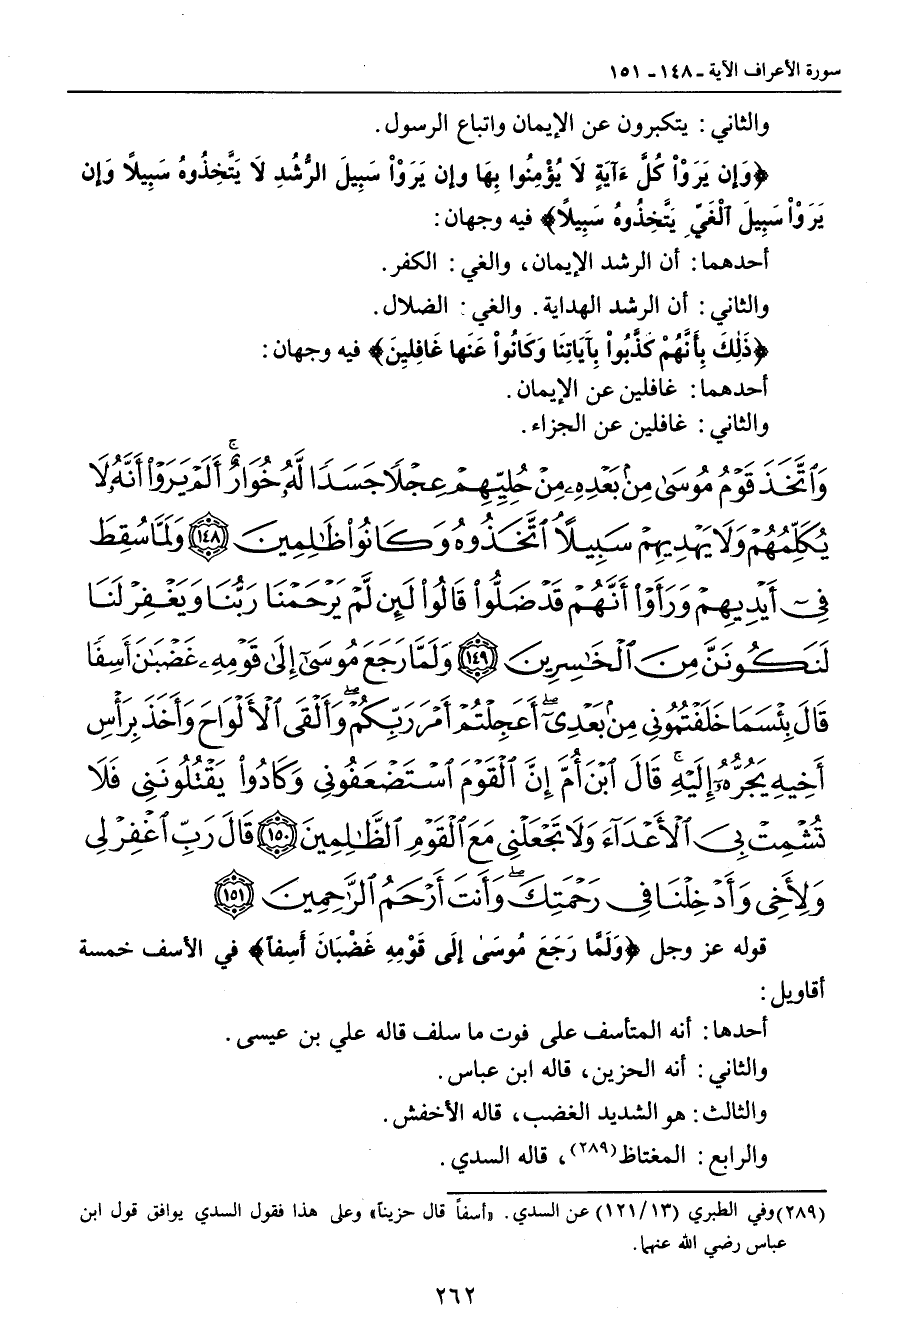 سورة الأعراف الآية ـ ١٤٨ ـ ١٥١
والثاني: يتكبرون عن الإيمان واتباع الرسول.
﴿وَإِن يَرَوْاْ كُلَّ ءَايَةٍ لَا يُؤْمِنُوا بِهَا وإِن يَرَوْاْ سَبِيلَ الرُّشْدِ لَا يَتَّخِذُوهُ سَبِيلًا وَإِن
يَرَوْاْ سَبِيلَ الْغَيِّ يَتَّخِذُوهُ سَبِيلًا﴾ فيه وجهان:
أحدهما: أن الرشد الإيمان، والغي: الكفر.
والثاني: أن الرشد الهداية. والغي: الضلال.
﴿ذَلِكَ بِأَنَّهُمْ كَذَّبُواْ بِآيَاتِنَا وَكَانُواْ عَنهَا غَافِلِينَ﴾ فيه وجهان:
أحدهما: غافلين عن الإيمان.
والثاني: غافلين عن الجزاء.
وَٱتَّخَذَ قَوْمُ مُوسَىٰ مِنۢ بَعْدِهِۦ مِنْ حُلِيِّهِمْ عِجْلًا جَسَدًا لَّهُۥ خُوَارٌ ۚ أَلَمْ يَرَوْا۟ أَنَّهُۥ لَا
يُكَلِّمُهُمْ وَلَا يَهْدِيهِمْ سَبِيلًا ٱتَّخَذُوهُ وَكَانُوا۟ ظَٰلِمِينَ ١٤٨ وَلَمَّا سُقِطَ
فِىٓ أَيْدِيهِمْ وَرَأَوْا۟ أَنَّهُمْ قَدْ ضَلُّوا۟ قَالُوا۟ لَئِن لَّمْ يَرْحَمْنَا رَبُّنَا وَيَغْفِرْ لَنَا
لَنَكُونَنَّ مِنَ ٱلْخَٰسِرِينَ ١٤٩ وَلَمَّا رَجَعَ مُوسَىٰٓ إِلَىٰ قَوْمِهِۦ غَضْبَٰنَ أَسِفًا
قَالَ بِئْسَمَا خَلَفْتُمُونِى مِنۢ بَعْدِىٓ ۖ أَعَجِلْتُمْ أَمْرَ رَبِّكُمْ ۖ وَأَلْقَى ٱلْأَلْوَاحَ وَأَخَذَ بِرَأْسِ
أَخِيهِ يَجُرُّهُۥٓ إِلَيْهِ ۚ قَالَ ٱبْنَ أُمَّ إِنَّ ٱلْقَوْمَ ٱسْتَضْعَفُونِى وَكَادُوا۟ يَقْتُلُونَنِى فَلَا
تُشْمِتْ بِىَ ٱلْأَعْدَآءَ وَلَا تَجْعَلْنِى مَعَ ٱلْقَوْمِ ٱلظَّٰلِمِينَ ١٥٠ قَالَ رَبِّ ٱغْفِرْ لِى
وَلِأَخِى وَأَدْخِلْنَا فِى رَحْمَتِكَ ۖ وَأَنتَ أَرْحَمُ ٱلرَّٰحِمِينَ ١٥١
قوله عز وجل ﴿وَلَمَّا رَجَعَ مُوسَىٰ إِلَى قَوْمِهِ غَضْبَانَ أَسِفاً﴾ في الأسف خمسة
أقاويل:
أحدها: أنه المتأسف على فوت ما سلف قاله علي بن عيسى.
والثاني: أنه الحزين، قاله ابن عباس.
والثالث: هو الشديد الغضب، قاله الأخفش.
والرابع: المغتاظ(٢٨٩)، قاله السدي.
(٢٨٩) وفي الطبري (١٣/ ١٢١) عن السدي. «أسفاً قال حزيناً» وعلى هذا فقول السدي يوافق قول ابن
عباس رضي الله عنهما.
٢٦٢